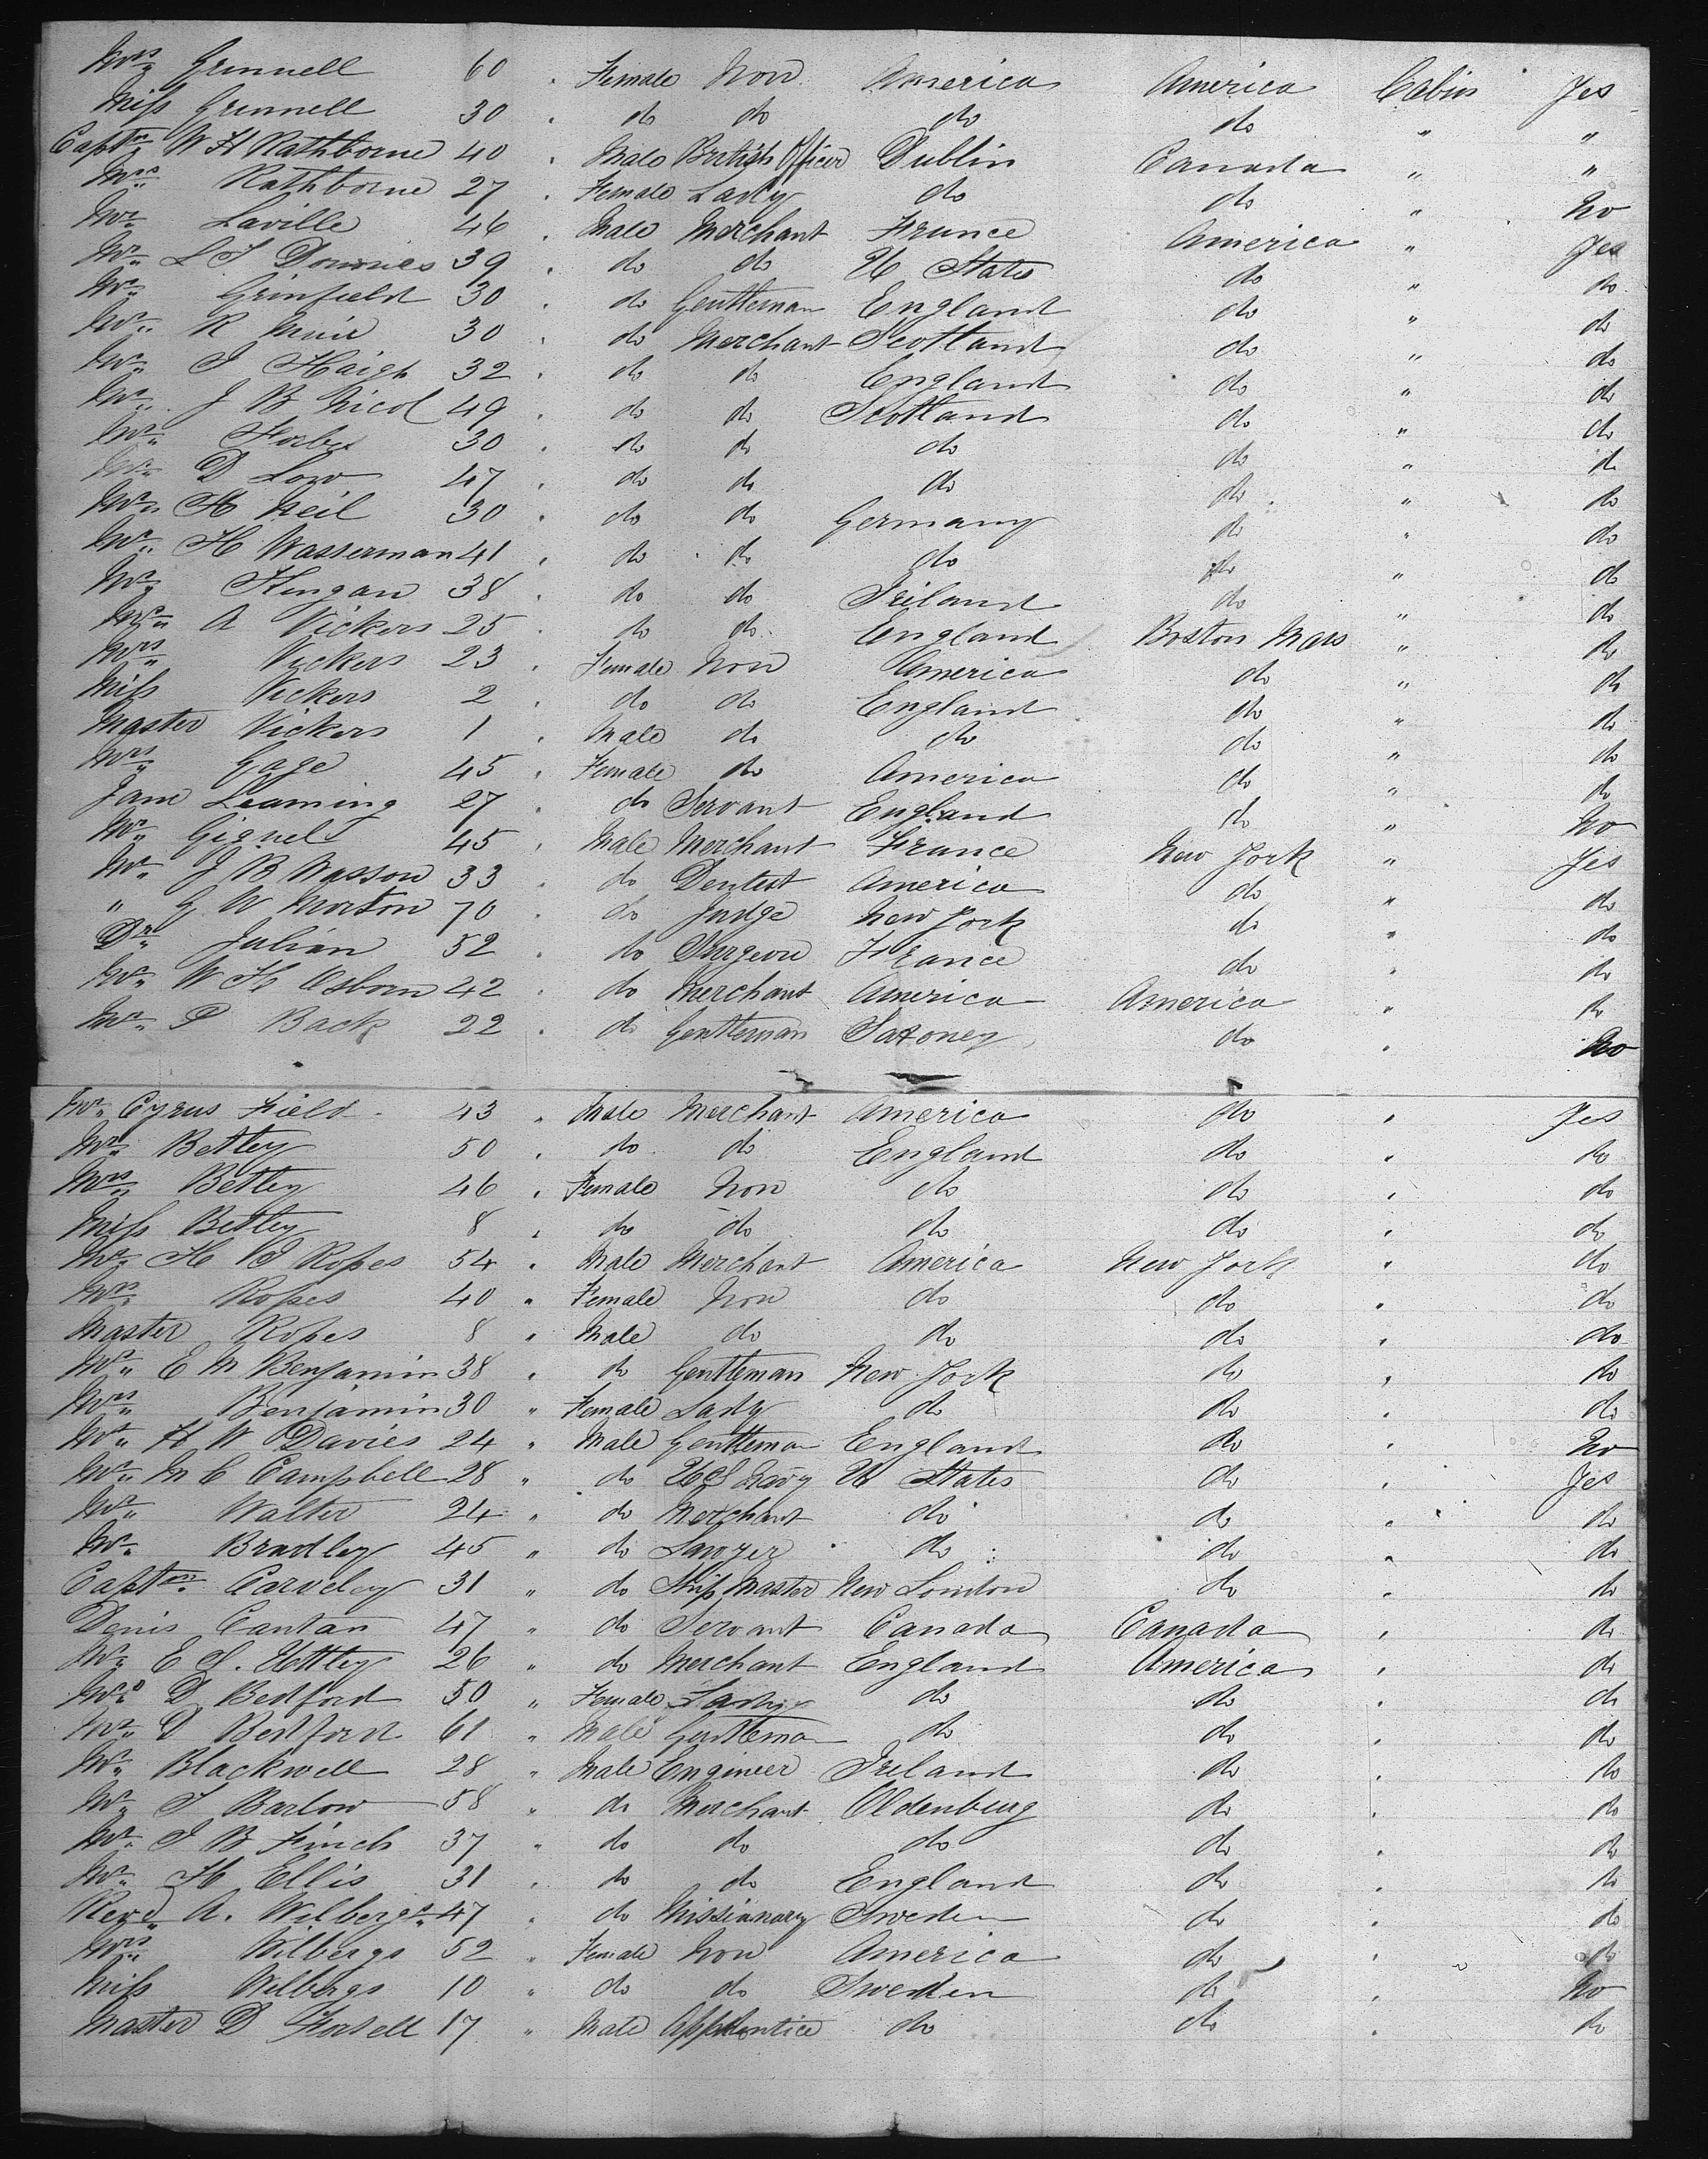 Mrs Grinnell 60 " Female Non America America Cabin Yes
Miss Grinnell 30 " do do do do " "
Captn W H Rathborne 40 " Male British Officer Dublin Canada " "
Mrs Rathborne 27 " Female Lady do do " No
Mr Laville 46 " Male Merchant France America " Yes
Mr L S 39 " do do U States do " do
Mr Grinfield 30 " do Gentleman England do " do
Mr R Muir 30 " do Merchant Scotland do " do
Mr J Haigh 32 " do do England do " do
Mr J B Nicol 49 " do do Scotland do " do
Mr Forbes 30 " do do do do " do
Mr D Low 47 " do do do do " do
Mr H Neil 30 " do do Germany do " do
Mr H Wasserman 41 " do do do do " do
Mr Hingan 38 " do do Ireland do " do
Mr A Vickers 25 " do do England Boston Mass " do
Mrs Vickers 23 " Female Non America do " do
Miss Vickers 2 " do do England do " do
Master Vickers 1 " Male do do do " do
Mrs Gage 45 " Female do America do " do
Jane Leaming 27 " do Servant England do " No
Mr 45 " Male Merchant France New York " Yes
Mr J B Wasson 33 " do Dentist America do " do
" G W Morton 70 " do Judge New York do " do
Dr Julian 52 " do Surgeon France do " do
Mr W H Osborn 42 " do Merchant America America " do
Mr P Back 22 " do Gentleman Saxoney do " No
Mr Cyrus Field 43 " Male Merchant America do " Yes
Mr Betley 50 " do do England do " do
Mrs Betley 46 " Female Non do do " do
Miss Betley 8 " do do do do " do
Mr H J Ropes 54 " Male Merchant America New York " do
Mrs Ropes 40 " Female Non do do " do
Master Ropes 8 " Male do do do " do
Mr E M Benjamin 38 " do Gentleman New York do " do
Mrs Benjamin 30 " Female Lady do do " do
Mr H W Davies 24 " Male Gentleman England do " No
Mr M C Campbell 28 " do US Navy U States do " Yes
Mr Walter 24 " do Merchant do do " do
Mr Bradley 45 " do Lawyer do do " do
Captn Carveley 31 " do Ship Master New London do " do
Denis Cantan 47 " do Servant Canada Canada " do
Mr E S. Uttley 26 " do Merchant England America " do
Mrs D Bedford 50 " Female Lady do do " do
Mr D Bedford 61 " Male Gentleman do do " do
Mr Blackwell 28 " Male Engineer Ireland do " do
Mr S Barlow 58 " do Merchant Oldenburg do " do
Mr J B Finch 37 " do do do do " do
Mr H Ellis 31 " do do England do " do
Revd A. Wilbergs 47 " do Missionary Sweden do " do
Mrs Wilbergs 52 " Female Non America do " do
Miss Wilbergs 10 " do do Sweden do " No
Master D Forsell 17 " Male Apprentice do do " do